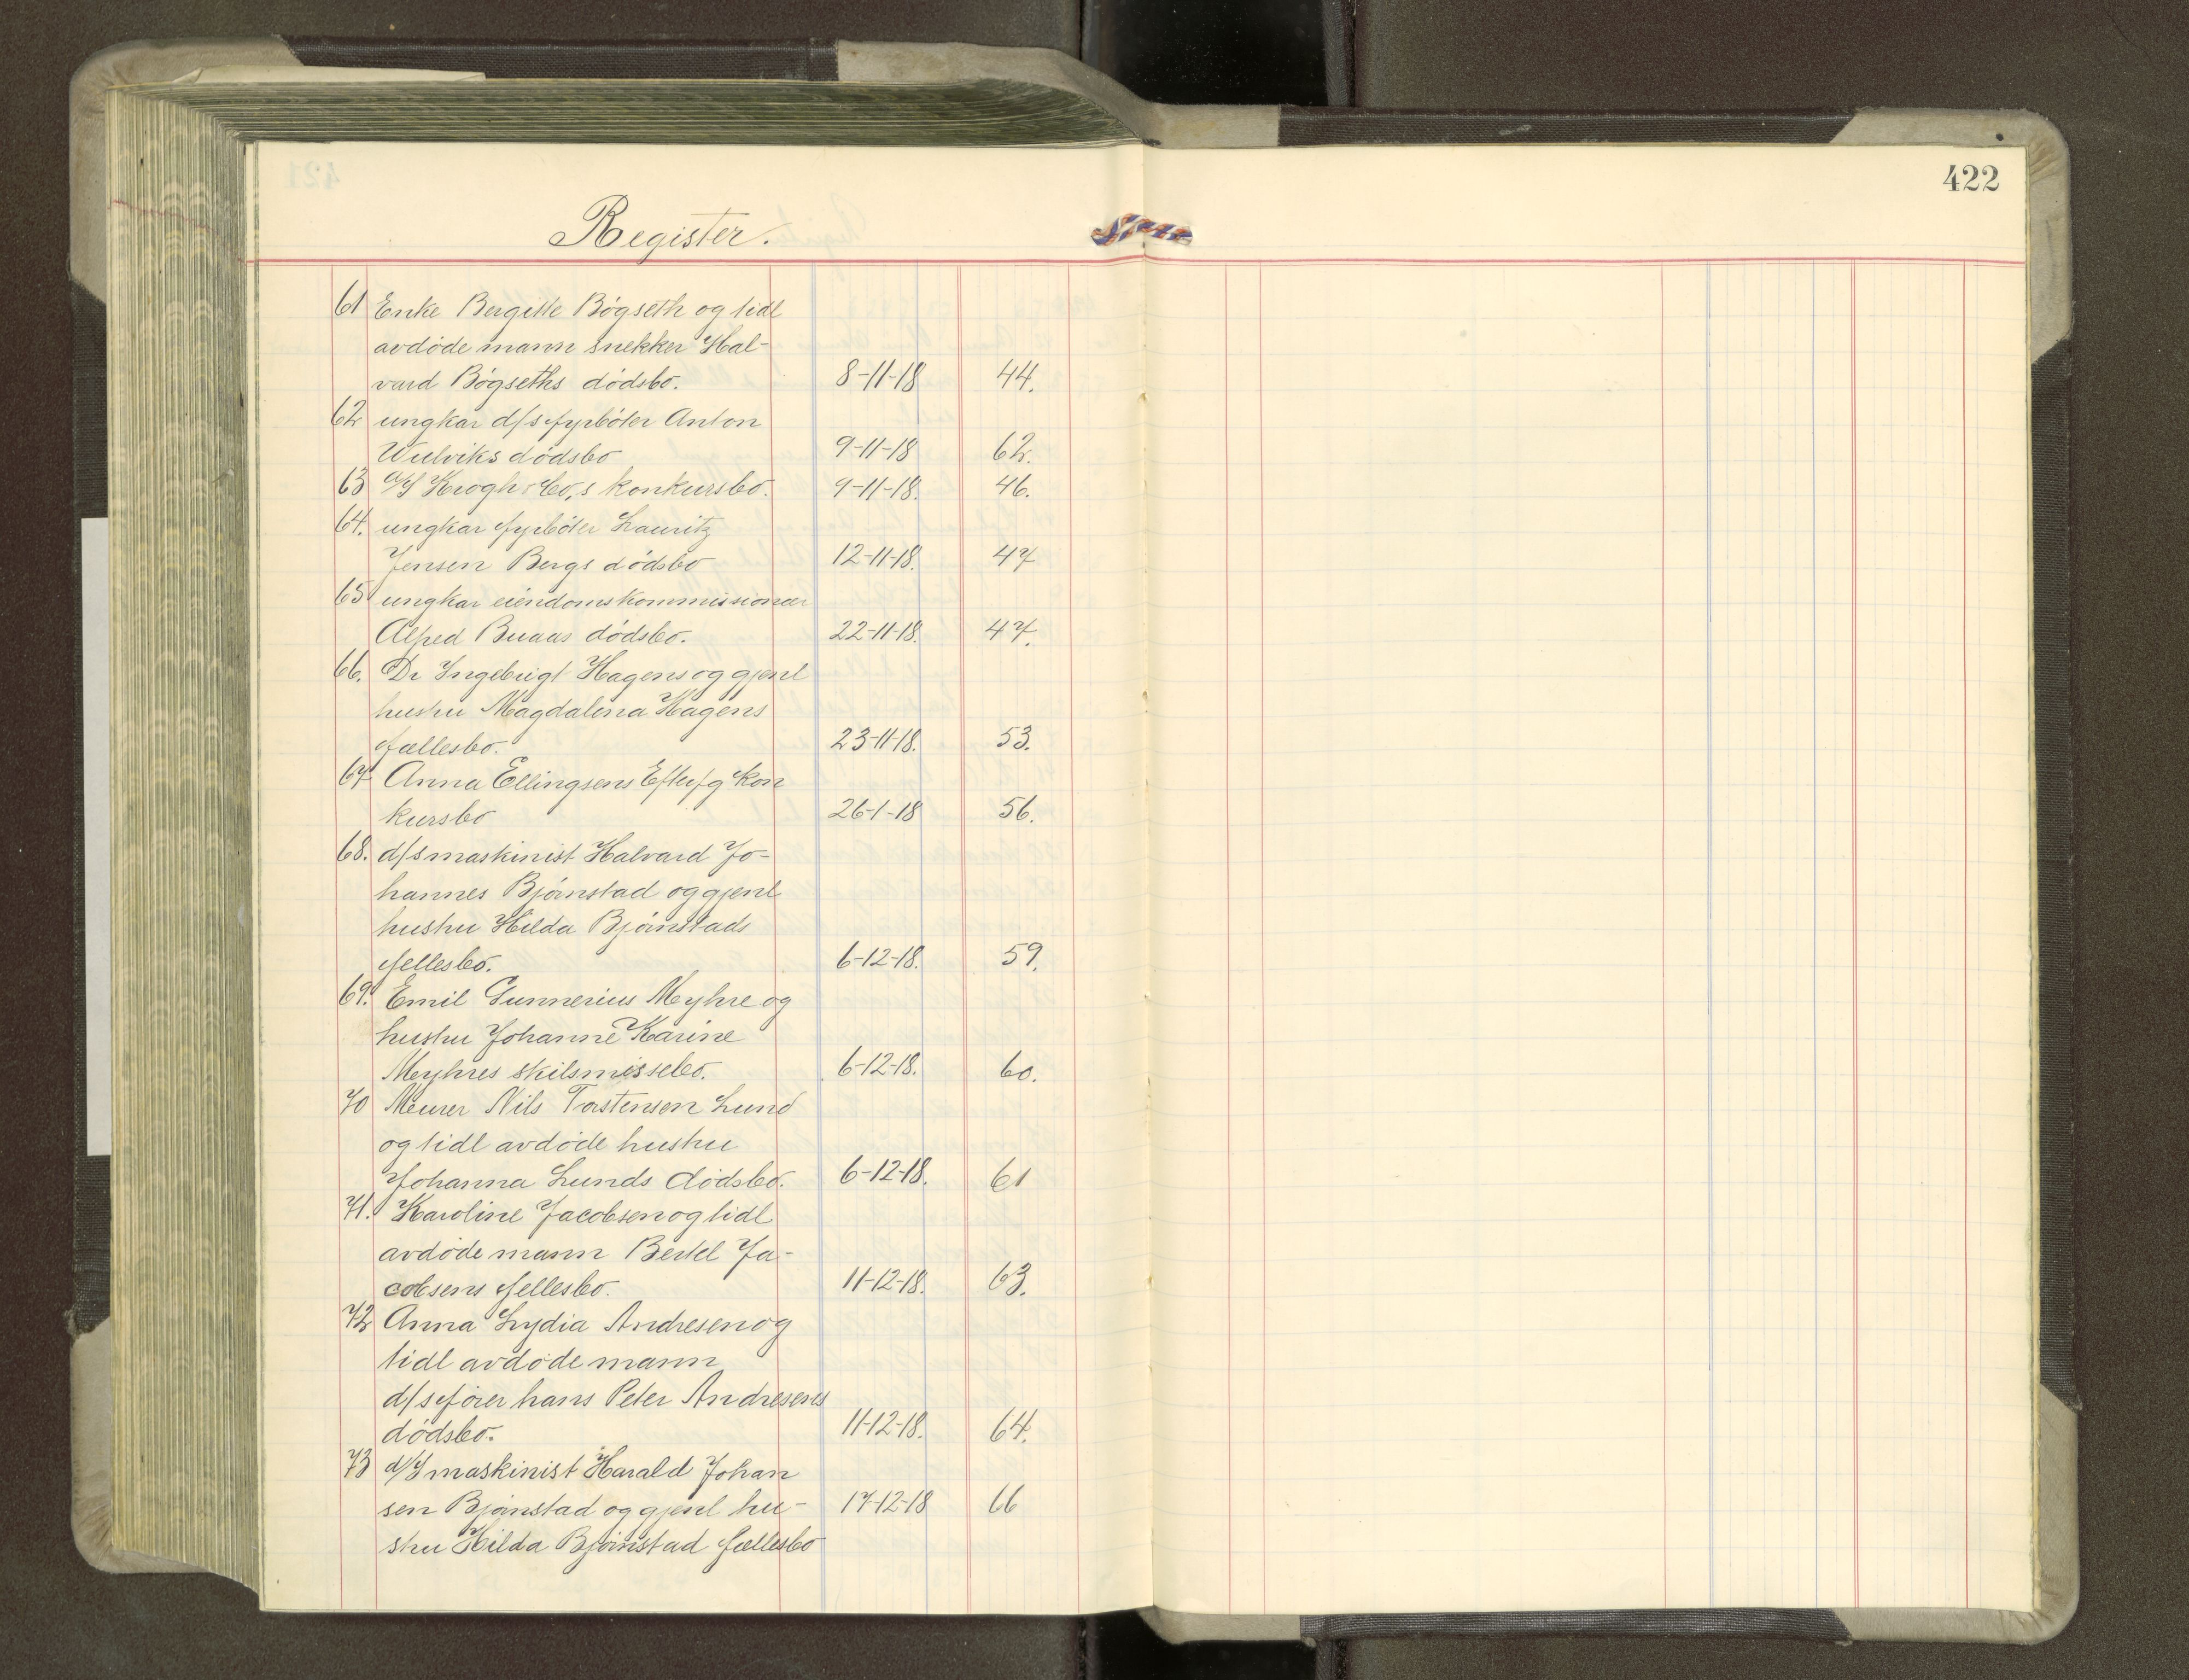 422
Register.
61 Enke Bergitte Bøgseth og tidl
avdøde mann snekker Hal-
vard Bøgseths dødsbo. 8-11-18 44.
62 ungkar d/s fyrbøter Anton
Wulviks dødsbo 9-11-18 62.
63 A/S Krogh & Co,s konkursbo. 9-11-18. 46.
64. ungkar fyrbøter Lauritz
Jensen Bergs dødsbo 12-11-18. 47
65 ungkar eiendomskommissionær
Alfred Buaas dødsbo. 22-11-18. 47.
66. Dr Ingebrigt Hagens og gjenl
hustru Magdalena Hagens
fællesbo. 23-11-18. 53.
67. Anna Ellingsens Efterfg kon
kursbo 26-1-18 56.
68. d/s maskinist Halvard Jo-
hannes Bjørnstad og gjenl
hustru Hilda Bjørnstads
fellesbo. 6-12-18. 59.
69. Emil Gunnerius Myhre og
hustru Johanne Karine
Myhres skilsmissebo. 6-12-18. 60.
70 Murer Nils Torstensen Lund
og tidl avdøde hustru
Johanna Lunds dødsbo. 6-12-18. 61
71. Karoline Jacobsen og tidl
avdøde mann Bertel Ja-
cobsens fellesbo. 11-12-18. 63.
72 Anna Lydia Andresen og
tidl avdøde mann
d/s fører hans Peter Andresens
dødsbo. 11-12-18. 64.
73 d/S maskinist Harald Johan
sen Bjørnstad og gjenl hu- 17-12-18 66
stru Hilda Bjørnstad fællesbo